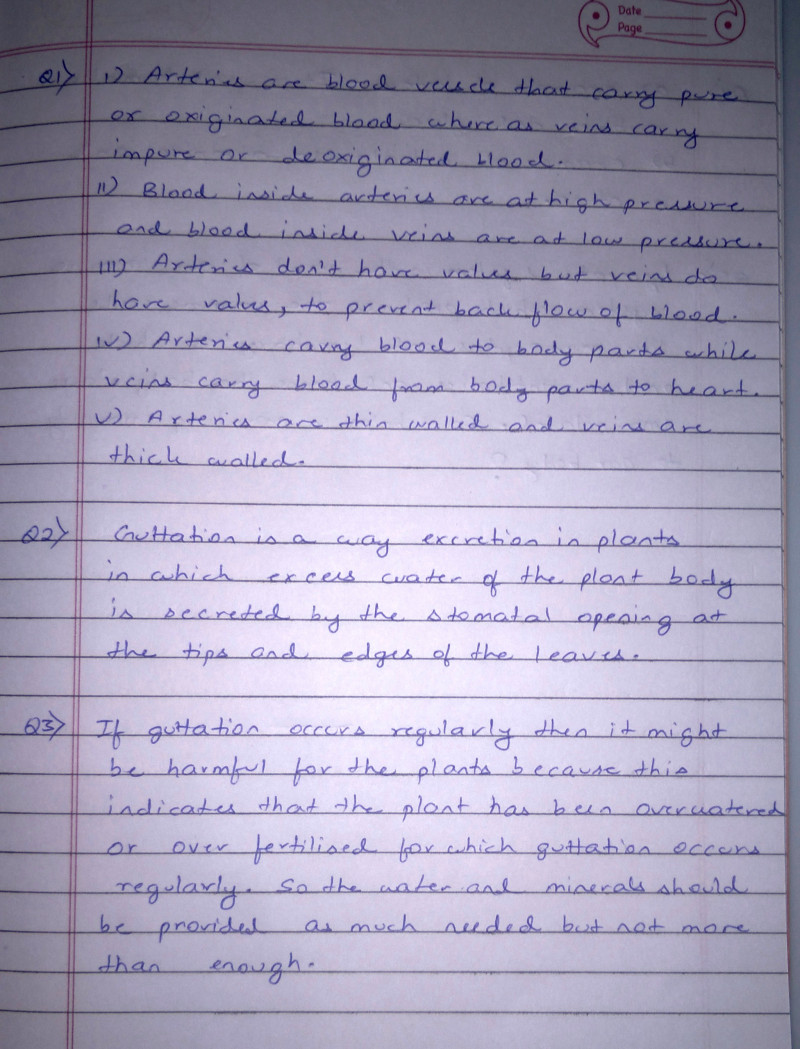 Date
Page
Q1) i) Arteries are blood vessels that carry pure
or oxiginated blood where as veins carry
impure or deoxiginated blood.
ii) Blood inside arteries are at high pressure
and blood inside veins are at low pressure.
iii) Arteries don't have values but veins do
have values, to prevent back flow of blood.
iv) Arteries carry blood to body parts while
veins carry blood from body parts to heart.
v) Arteries are thin walled and veins are
thick walled.
Q2) Guttation is a way excretion in plants
in which excess water of the plant body
is secreted by the stomatal opening at
the tips and edges of the leaves.
Q3) If guttation occurs regularly then it might
be harmful for the plants because this
indicates that the plant has been overwatered
or over fertilised for which guttation occurs
regularly. So the water and minerals should
be provided as much needed but not more
than enough.